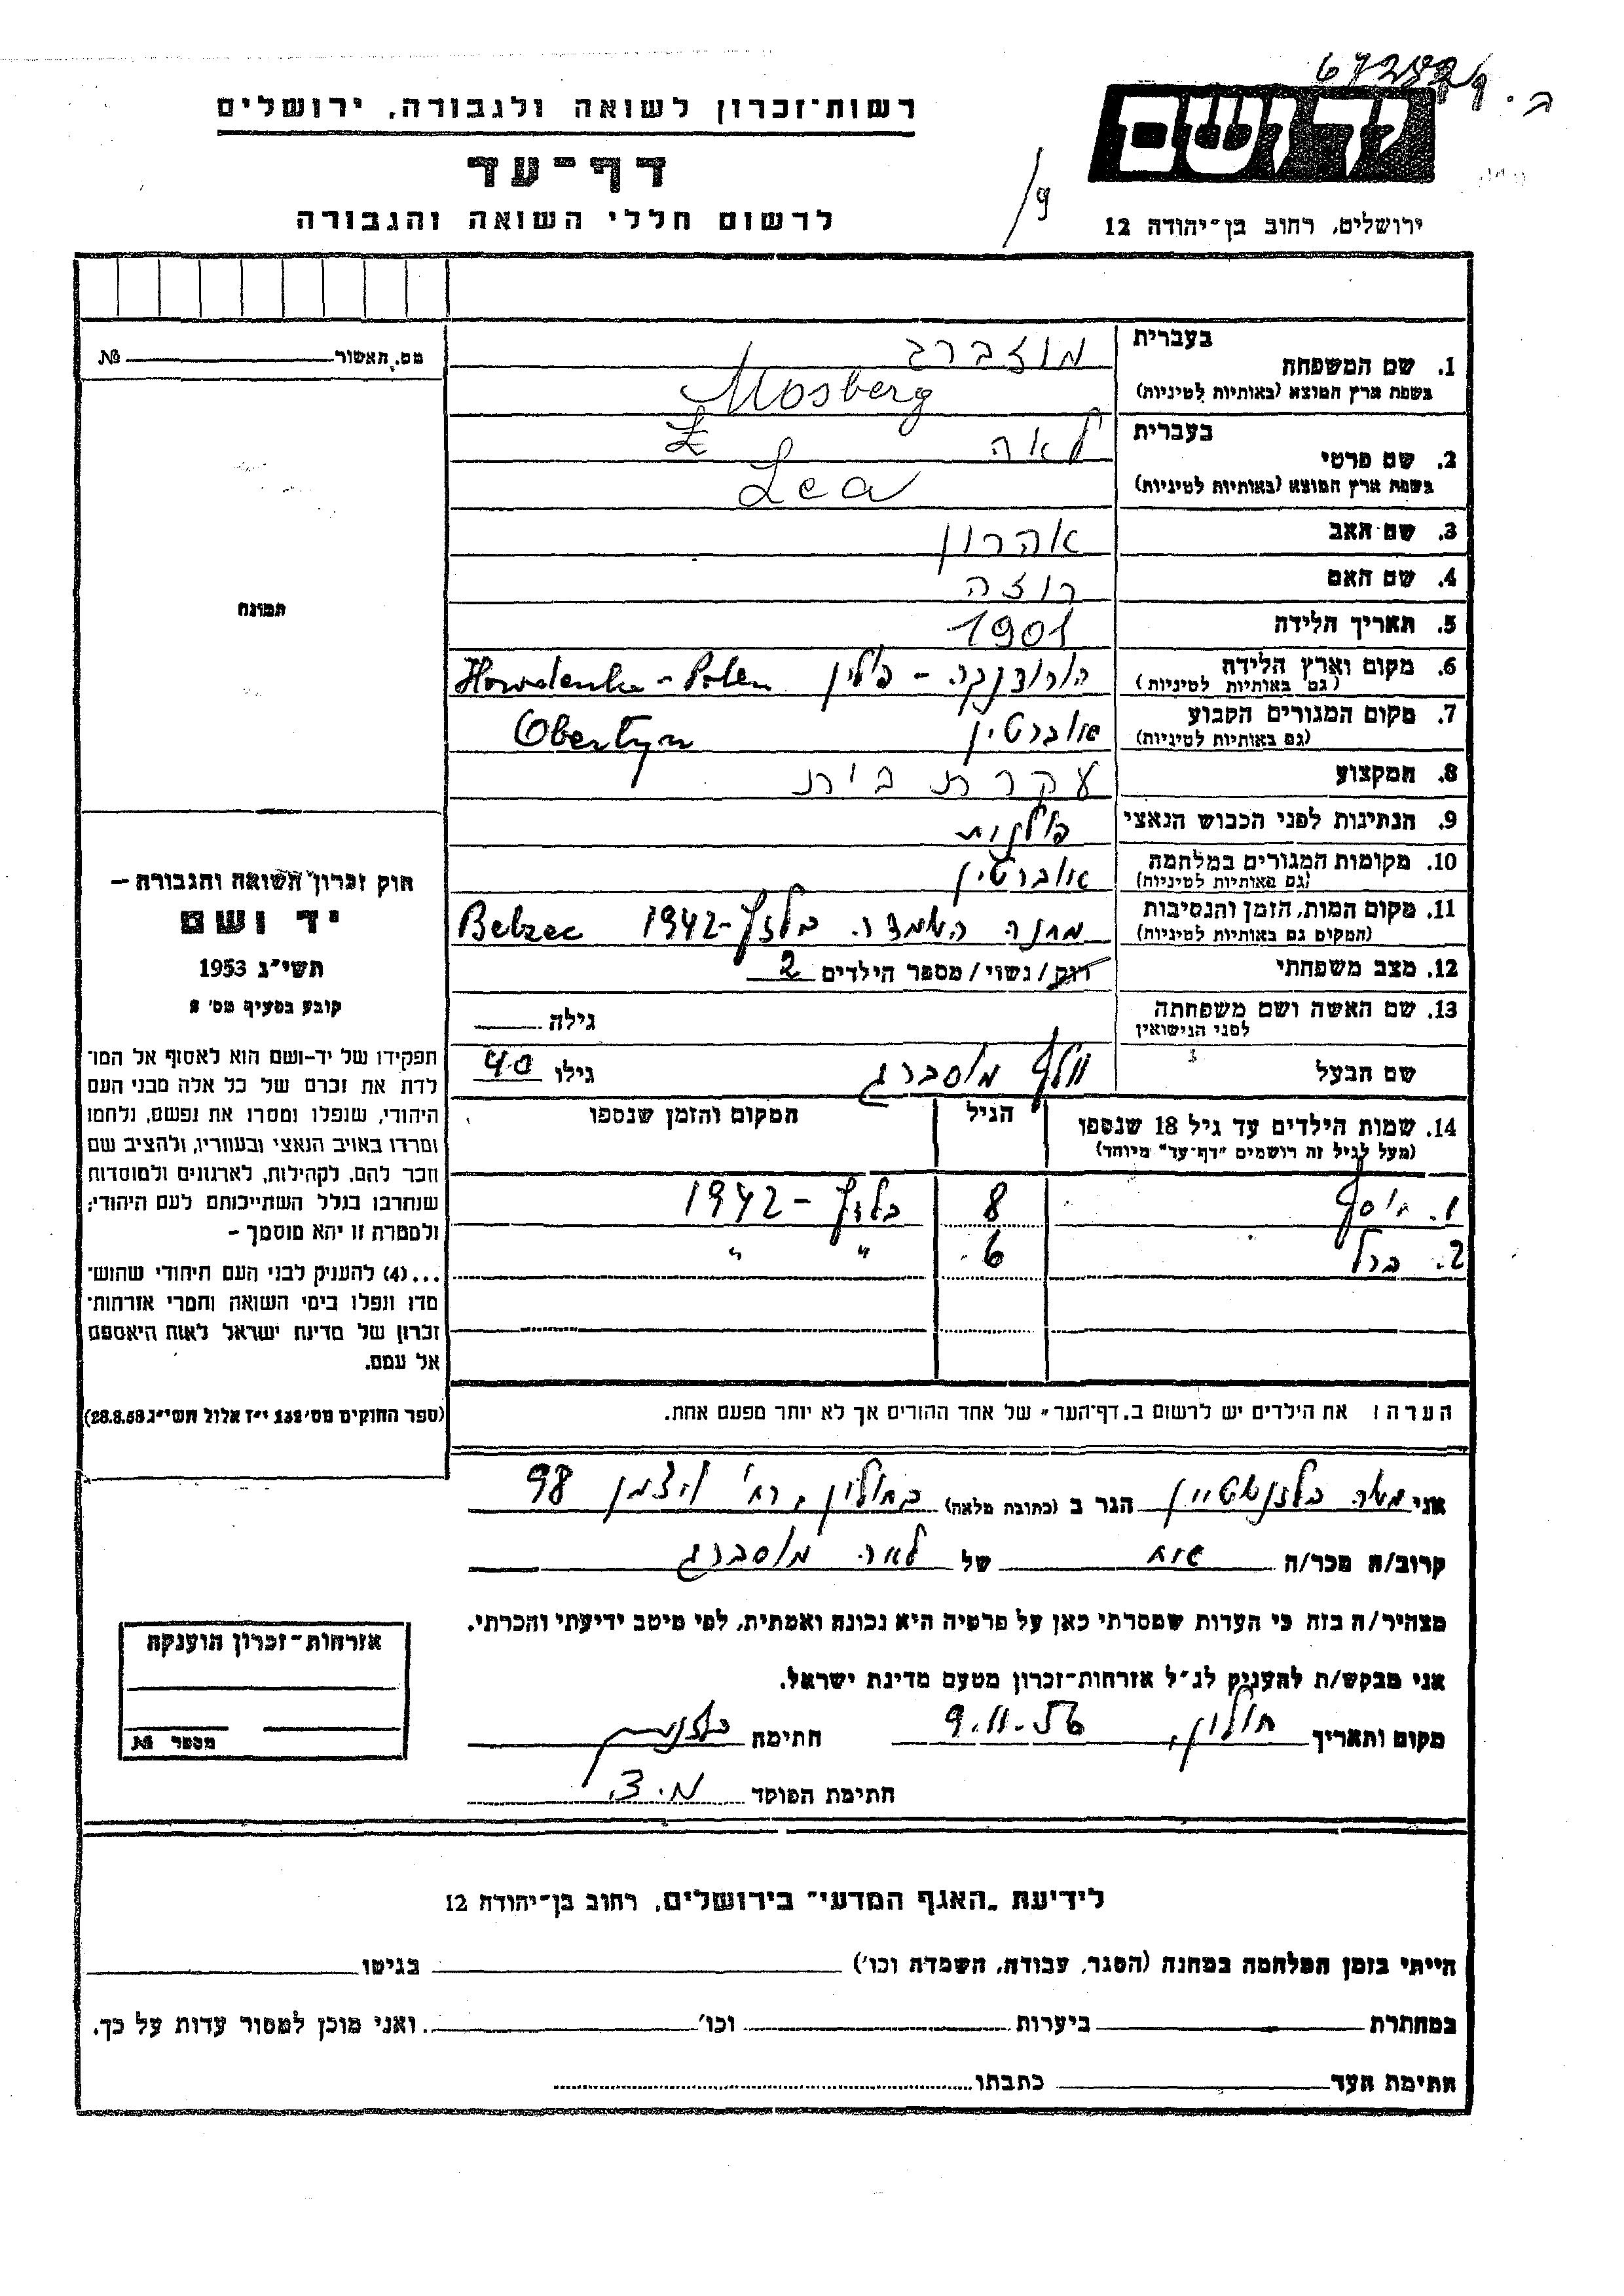 ב. 67254/9
רשות־זכרון לשואה ולגבורה, ירושלים
דף־עד
לרשום חללי השואה והגבורה
ידושם
ירושלים, רחוב בן־יהודה 12
9/
מס. תאשור № 
תמונה
חוק זכרון השואה והגבורה —
יד ושם
תשי״ג 1953
קובע בסעיף מס׳ 2
תפקידו של יד-ושם הוא לאסוף אל המו־
לדת את זכרם של כל אלה מבני העם
היהודי, שנפלו ומסרו את נפשם, נלחמו
ומרדו באויב הנאצי ובעוזריו, ולהציב שם
וזכר להם, לקהילות, לארגונים ולמוסדות
שנחרבו בגלל השתייכותם לעם היהודי;
ולמטרת זו יהא מוסמך —
...(4) להעניק לבני העם היהודי שהוש־
מדו ונפלו בימי השואה והמרי אזרחות־
זכרון של מדינת ישראל לאות היאספם
אל עמם.
(ספר החוקים מס׳ 132 י״ז אלול תשי״ג 28.8.53)
בעברית
1. שם המשפחה מוזברג
בשפת ארץ המוצא (באותיות לטיניות) Mosberg
בעברית
2. שם פרטי לאה
בשפת ארץ המוצא (באותיות לטיניות) Lea
3. שם האב אהרון
4. שם האם רוזה
5. תאריך הלידה 1901
6. מקום וארץ הלידה הורודנקה - פולין Howdenka - Polen
(גם באותיות לטיניות)
7. מקום המגורים הקבוע אוברטין Obertyn
(גם באותיות לטיניות)
8. המקצוע עקרת בית
9. הנתינות לפני הכבוש הנאצי פולנית
10. מקומות המגורים במלחמה אוברטין
(גם באותיות לטיניות)
11. מקום המות, הזמן והנסיבות מחנה השמדה בלזץ-1942 Belzec
(המקום גם באותיות לטיניות)
12. מצב משפחתי רווק/נשוי/מספר הילדים 2
13. שם האשה ושם משפחתה גילה
לפני הנישואין
שם הבעל וולף מוסברג גילו 40
14. שמות הילדים עד גיל 18 שנספו הגיל המקום והזמן שנספו
(מעל לגיל זה רושמים ״דף־עד״ מיוחד)
1. יוסף 8 בלזץ - 1942
2. ברל 6 ״ ״
הערה: את הילדים יש לרשום ב„דף־העד״ של אחד ההורים אך לא יותר מפעם אחת.
אני משה בלזנשטיין הגר ב (כתובת מלאה) בחולון, רח׳ ויצמן 98
קרוב/ה מכר/ה אח של לאה מוסברג
מצהיר/ה בזה כי העדות שמסרתי כאן על פרטיה היא נכונה ואמתית, לפי מיטב ידיעתי והכרתי.
אני מבקש/ת להעניק לנ״ל אזרחות־זכרון מטעם מדינת ישראל.
מקום ותאריך חולון, 9.11.56 חתימה
חתימת הפוקד מ.צ.
אזרחות־זכרון הוענקה
מספר №
לידיעת „האגף המדעי״ בירושלים, רחוב בן־יהודה 12
הייתי בזמן המלחמה במחנה (הסגר, עבודה, השמדה וכו׳) בגיטו
במחתרת ביערות וכו׳ ואני מוכן למסור עדות על כך.
חתימת העד כתבתו